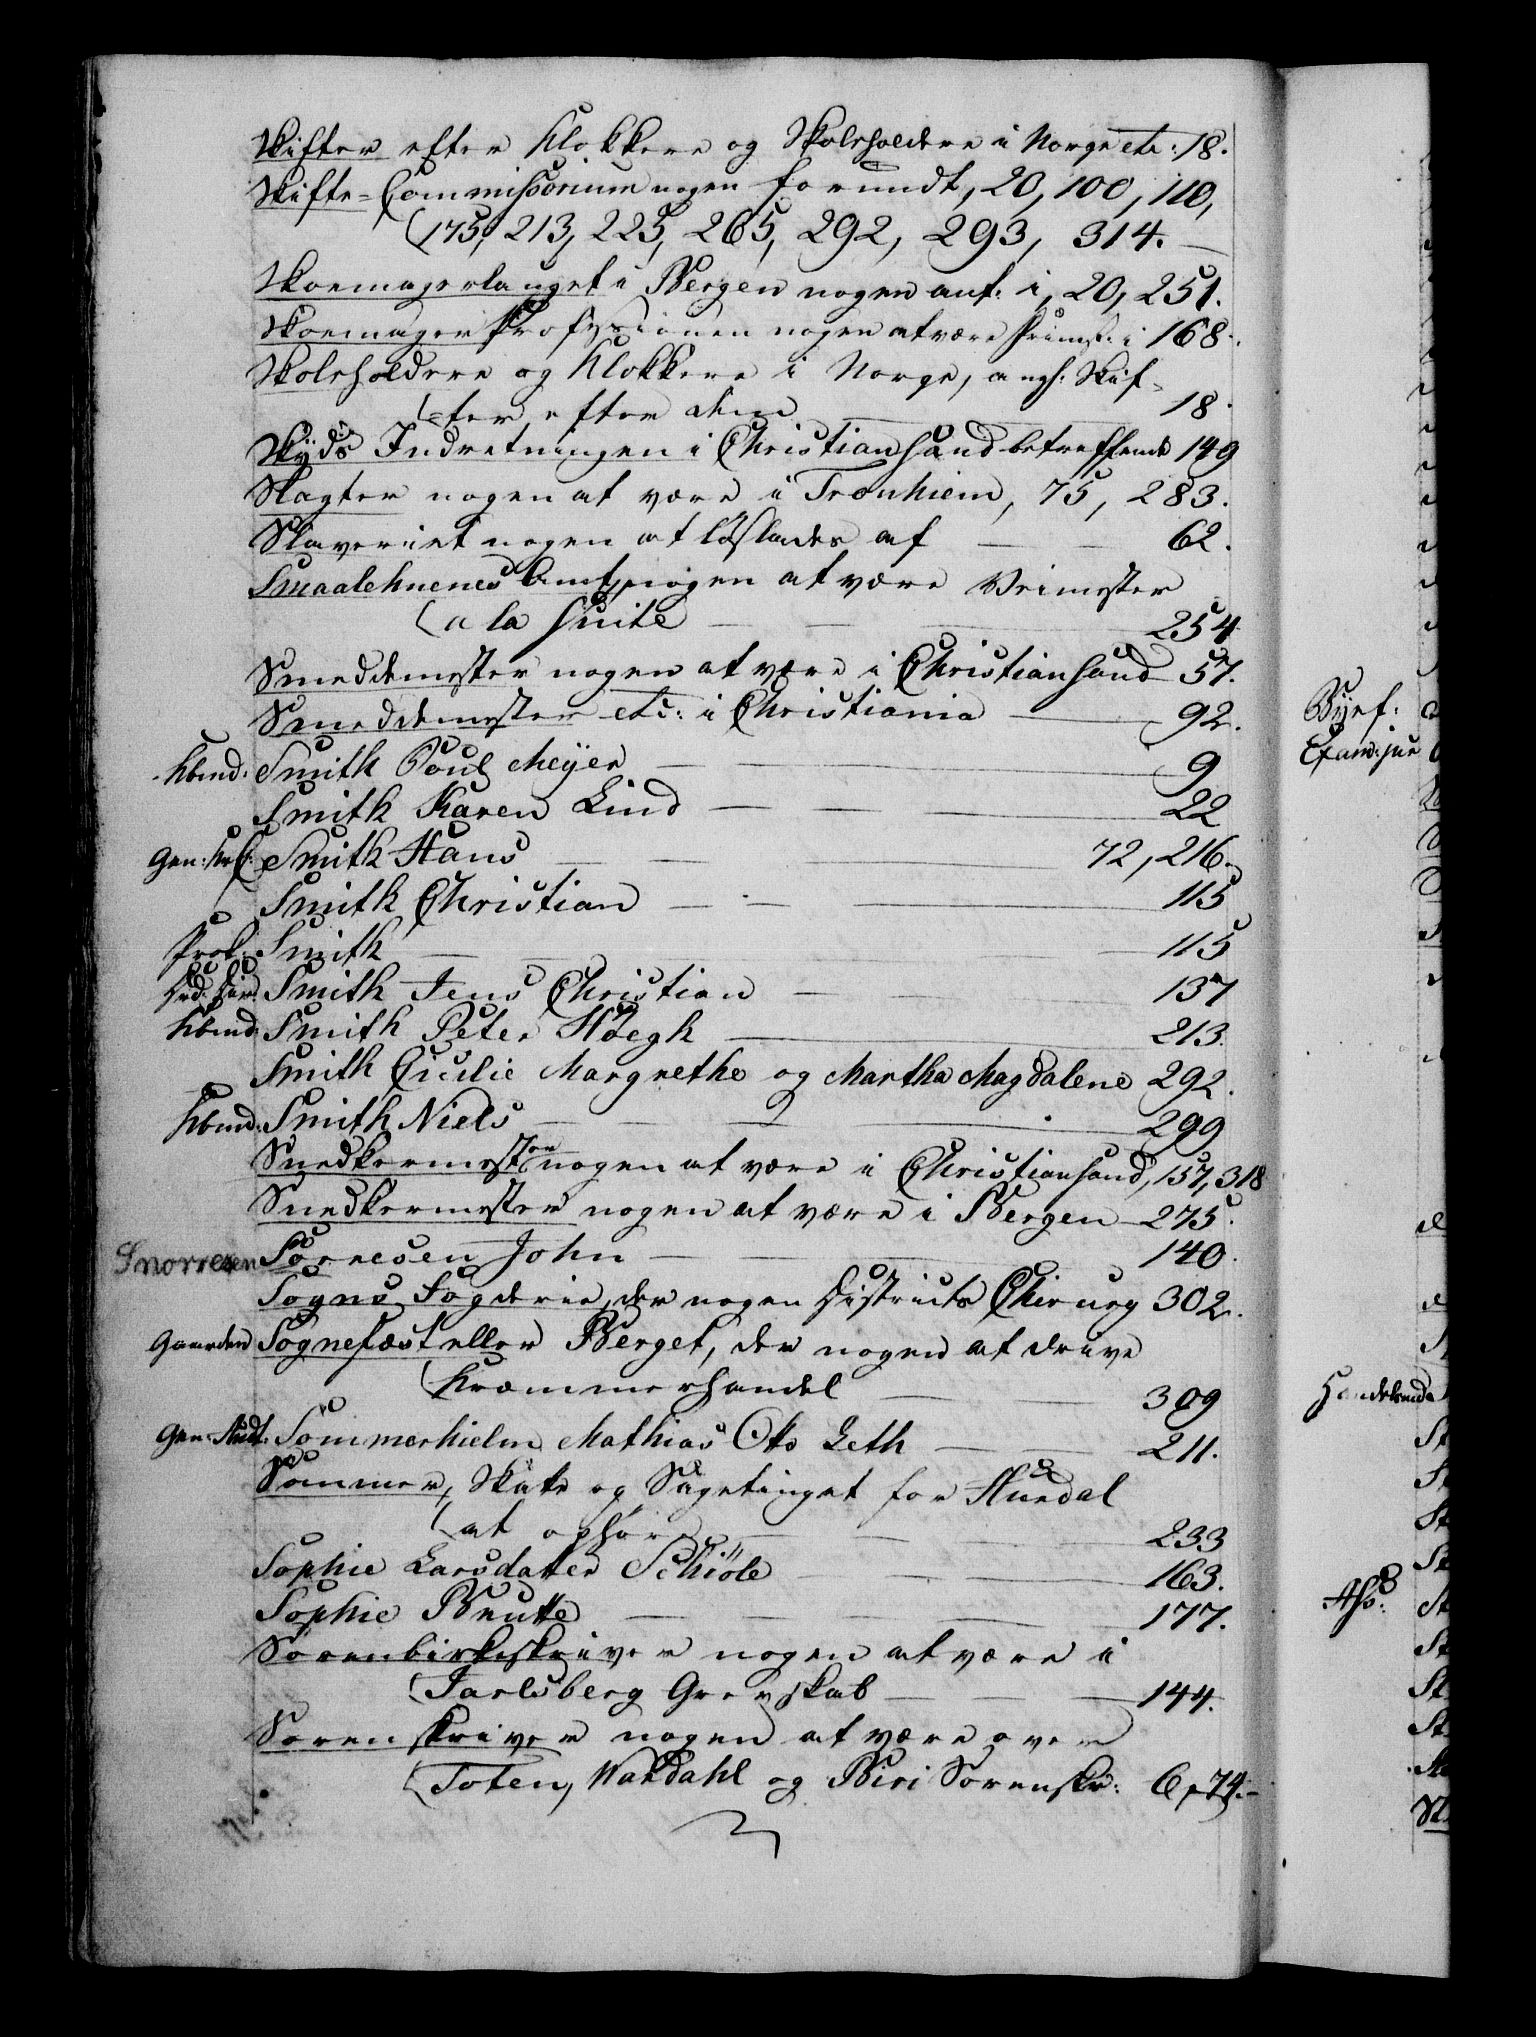 Skifter efter Klokkere og Skoleholdere i Norge etc: 18.
Skifte-Commissorium nogen forundt, 20, 100, 110,
(175, 213, 225, 265, 292, 293, 314.
Skoemagerlauget i Bergen nogen ant: i, 20, 251.
Skoemager Professionen nogen at være i 168.
Skoleholdere og Klokkere i Norge, angl: Skif-
(ter efter dem 18.
Skyds Indretningen i Christiansand betreffende 149
Slagter nogen at være i Tronhiem, 75, 283.
Slaveriet nogen at løslades af 62.
Smaalehnenes Amt, nogen at være Veimester
(a la suite 254
Smeddemester nogen at være i Christiansand 57.
Smeddemester etc: i Christiania 92.
Kbmd: Smith Poul Meyer 9
Smith Karen Lind 22
Gen: Smith Hans 72, 216.
Smith Christian 115
Prok: Smith 115
Smith Jens Christian 137
Kbmd: Smith Peter Høegh 213.
Smith Cicilie Margrethe og Martha Magdalene 292.
Kbmd: Smith Niels 299
Snedkermester nogen at være i Christiansand, 157, 318
Snedkermester nogen at være i Bergen 275.
Snorresen Sörresen John 140.
Sogns Fogderie, der nogen Districts Chirurg 302.
Gaarden Sognefæst eller Berget, der nogen at drive
(Kræmmerhandel 309
Gen: Aud: Sommerhielm Mathias Otto Leth 211.
Sommer, Skatte og Sagetinget for Hurdal
(at ophøre 233
Sophie Larsdatter Schiöle 163.
Sophie Bentte 177.
Sorenbirkeskriver nogen at være i
(Jarlsberg Grevskab 144.
Sorenskriver nogen at være over
(Toten, Wardahl og Biri Sorenskr: 6, 74.